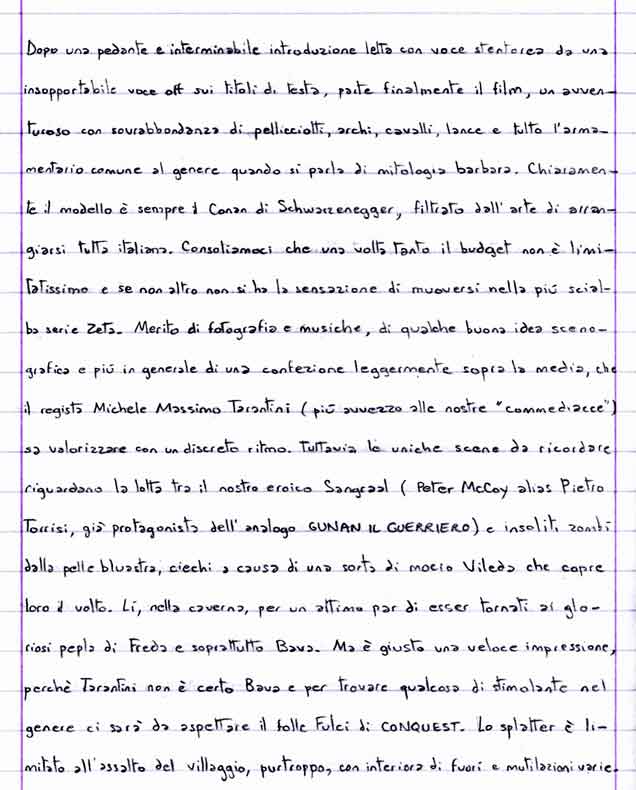 Dopo una pedante e interminabile introduzione letta con voce stentorea da una
insopportabile voce off sui titoli di testa, parte finalmente il film, un avven-
turoso con sovrabbondanza di pellicciotti, archi, cavalli, lance e tutto l'arma-
mentario comune al genere quando si parla di mitologia barbara. Chiaramen-
te il modello è sempre il Conan di Schwarzenegger, filtrato dall'arte di arran-
giarsi tutta italiana. Consoliamoci che una volta tanto il budget non è limi-
tatissimo e se non altro non si ha la sensazione di muoversi nella più scial-
ba serie Zeta. Merito di fotografia e musiche, di qualche buona idea sceno-
grafica e più in generale di una confezione leggermente sopra la media, che
il regista Michele Massimo Tarantini (più avvezzo alle nostre "commediacce")
sa valorizzare con un discreto ritmo. Tuttavia le uniche scene da ricordare
riguardano la lotta tra il nostro eroico Sangraal (Peter McCoy alias Pietro
Torrisi, già protagonista dell'analogo GUNAN IL GUERRIERO) e insoliti zombi
dalla pelle bluastra, ciechi a causa di una sorta di mocio Vileda che copre
loro il volto. Lì, nella caverna, per un attimo par di esser tornati ai glo-
riosi pepla di Freda e soprattutto Bava. Ma è giusto una veloce impressione,
perchè Tarantini non è certo Bava e per trovare qualcosa di stimolante nel
genere ci sarà da aspettare il folle Fulci di CONQUEST. Lo splatter è li-
mitato all'assalto del villaggio, purtroppo, con interiora di fuori e mutilazioni varie.